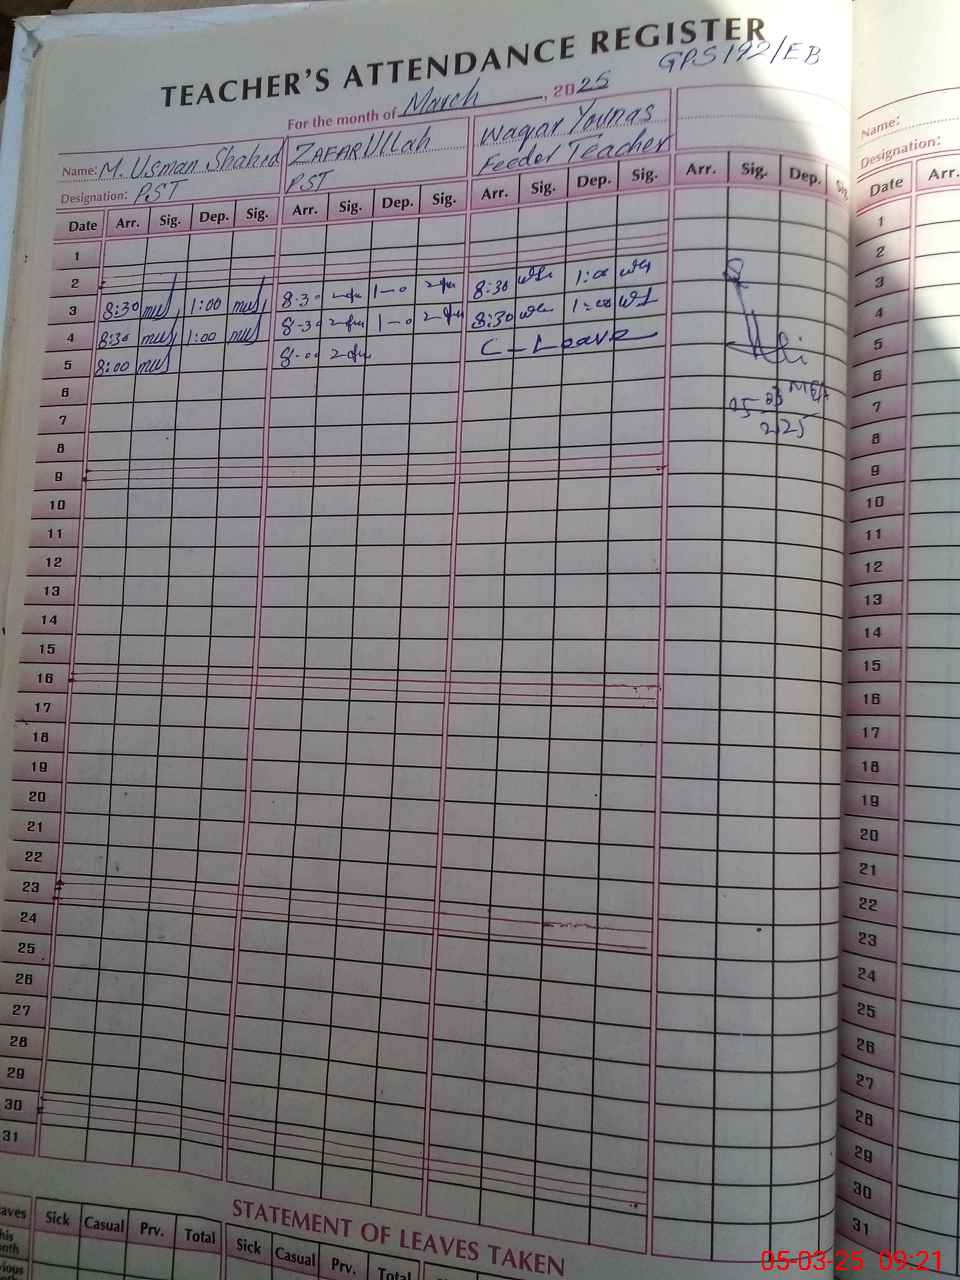 TEACHER'S ATTENDANCE REGISTER
GPS 192/EB
For the month of March, 2025
Name: M. Usman Shahid ZAFAR Ullah Waqar Younas
Designation: PST PST Feeder Teacher
Date Arr. Sig. Dep. Sig. Arr. Sig. Dep. Sig. Arr. Sig. Dep. Sig. Arr. Sig. Dep. Sig.
1
2
3 8:30 1:00 8-30 1-0 8:30 1:00
4 8:30 1:00 8-30 1-0 8:30 1:00
5 8:00 8-00 C-Leave
6
7 05-03 MEA
2025
8
9
10
11
12
13
14
15
16
17
18
19
20
21
22
23
24
25
26
27
28
29
30
31
STATEMENT OF LEAVES TAKEN
Sick Casual Prv. Total Sick Casual Prv. Total
Name:
Designation:
Date Arr.
1
2
3
4
5
6
7
8
9
10
11
12
13
14
15
16
17
18
19
20
21
22
23
24
25
26
27
28
29
30
31
05-03-25 09:21